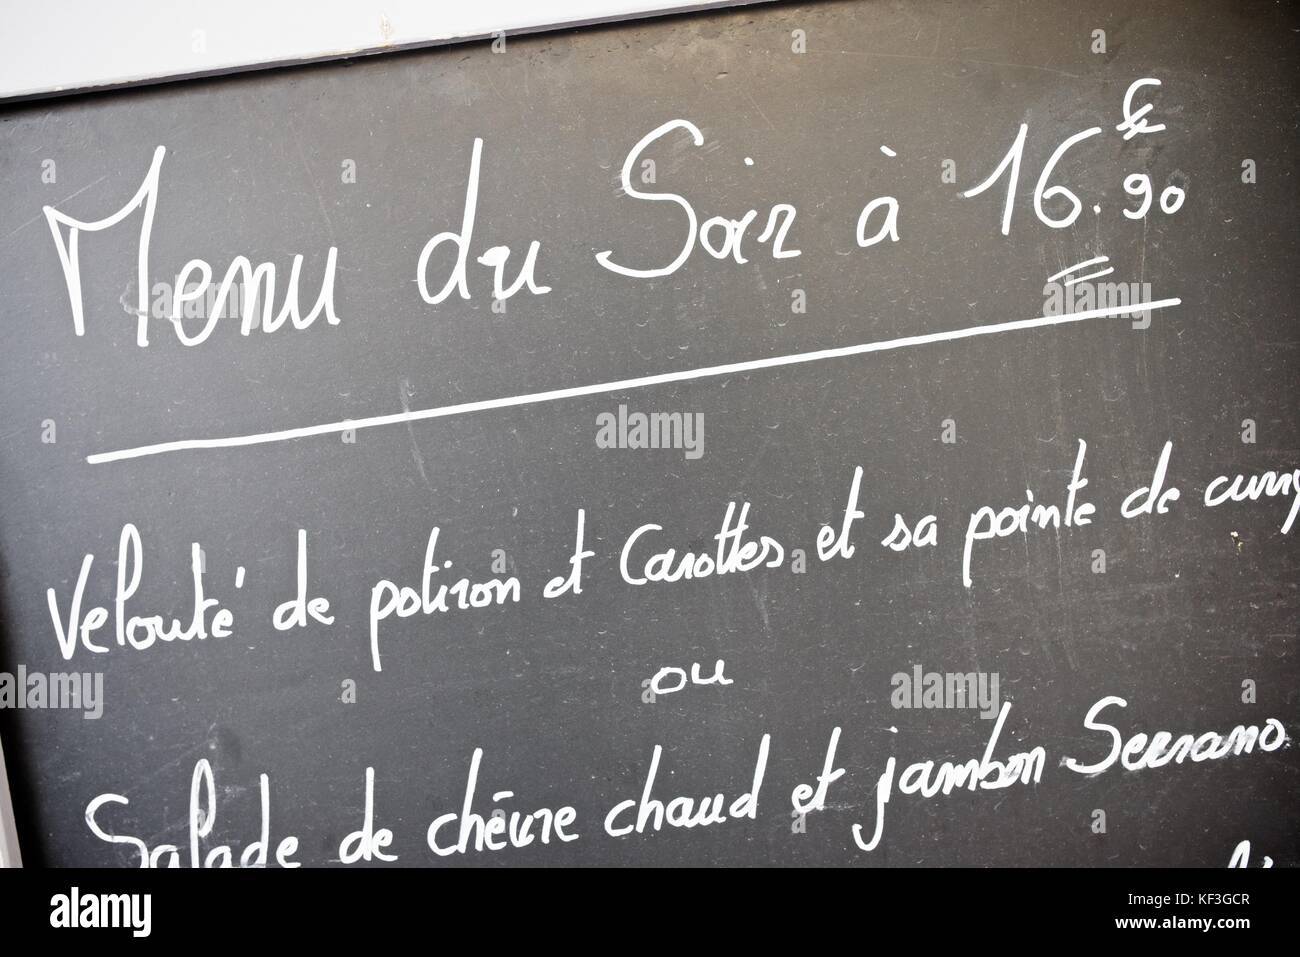 Menu du Soir à 16.90 €
Velouté de potiron et Carottes et sa pointe de curry
ou
Salade de chèvre chaud et jambon Serrano
alamy
Image ID: KF3GCR
www.alamy.com